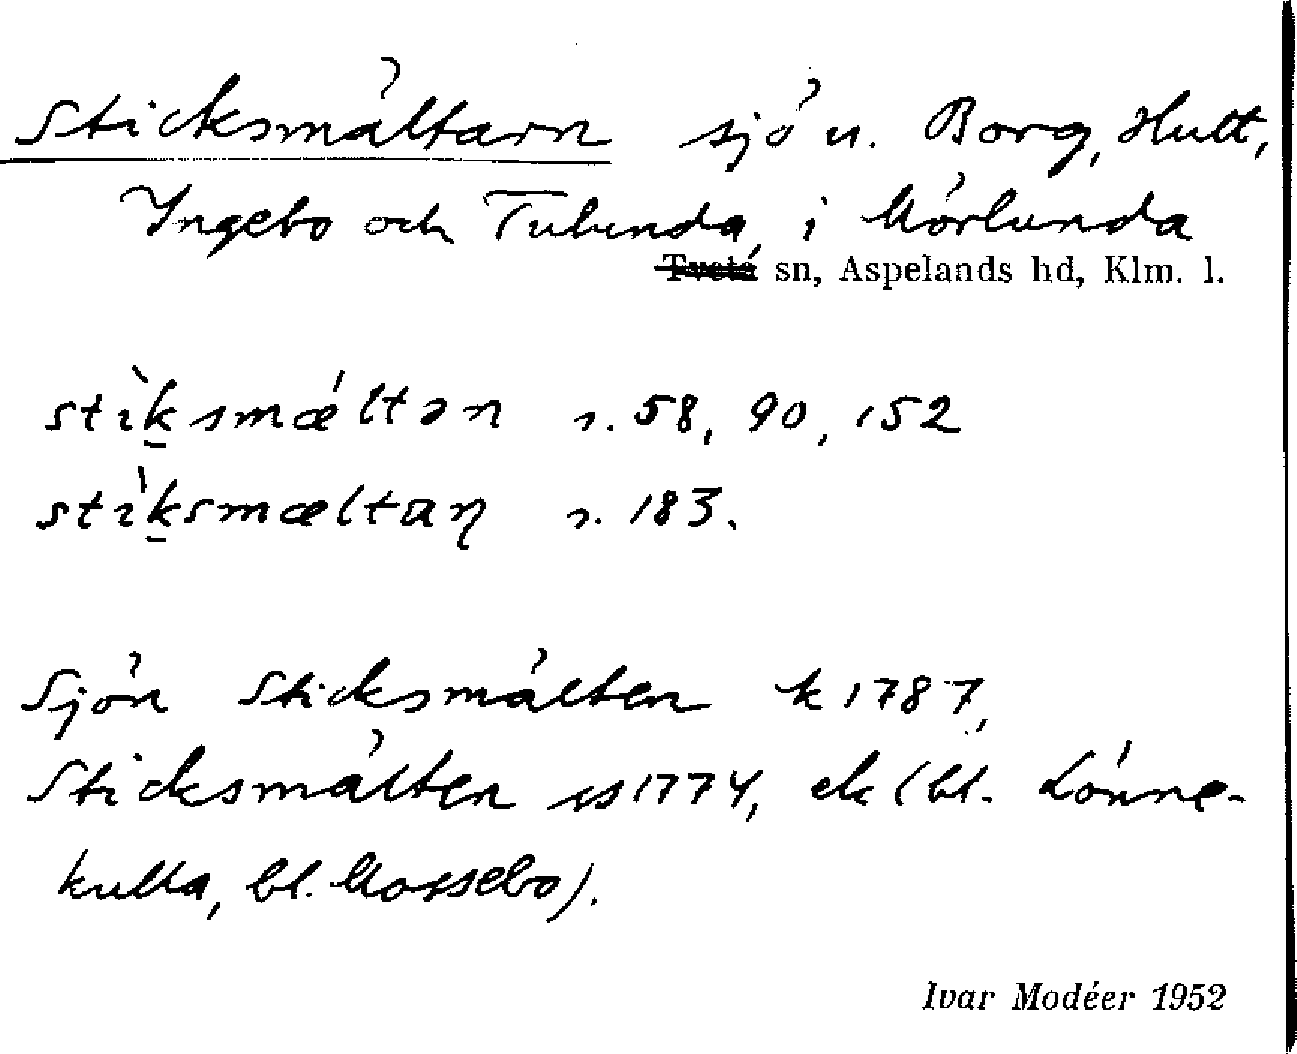 Sticksmältarn sjö u. Borg, Hult,
Ingebo och Tulunda, i Mörlunda
Tveta sn, Aspelands hd, Klm. l.
stìksmǽltən s. 58, 90, 152
stìksmæltaɳ s. 183.
Sjön Sticksmälten k 1787,
Sticksmälten ss 1774, ek (bl. Lönne-
kulla, bl. Mossebo).
Ivar Modéer 1952